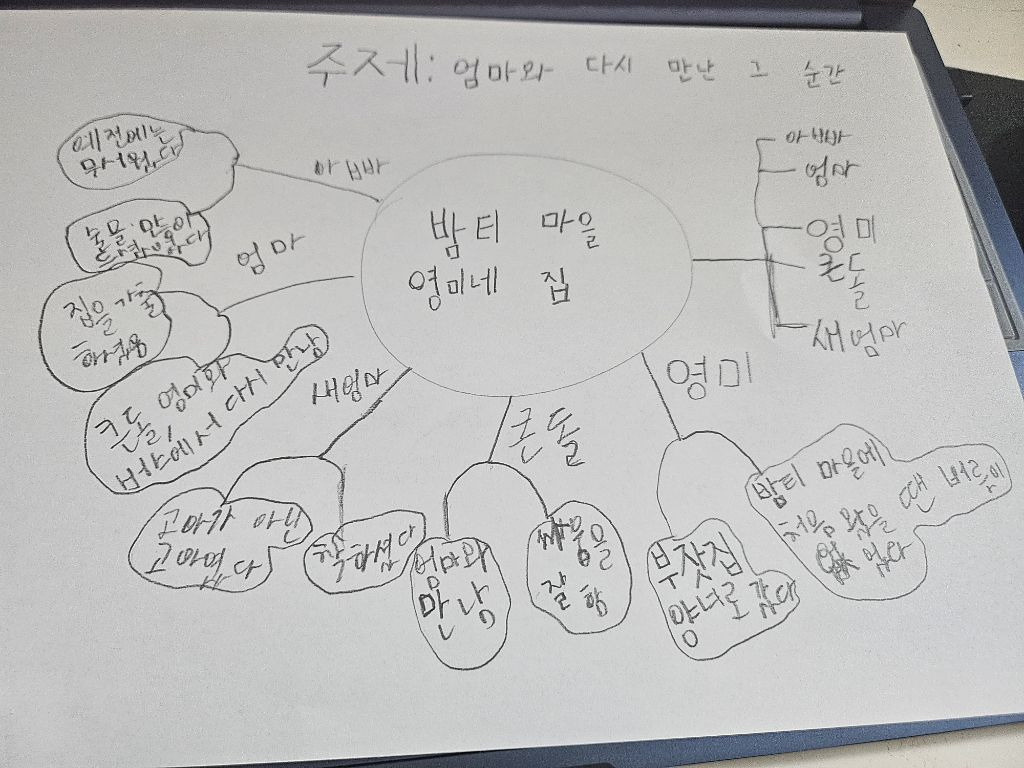 주제: 엄마와 다시 만난 그 순간
밤티 마을
영미네 집
아빠
예전에는
무서웠다
술을 많이
엄마
집을 가출
하셨음
큰돌, 영미와
에서 다시 만남
새엄마
고아가 아닌
고아였다
착하셨다
큰돌
엄마와
만남
싸움을
잘 함
영미
부잣집
양녀로 갔다
밤티 마을에
처음 왔을 땐 버릇이
없었다
아빠
엄마
영미
큰돌
새엄마